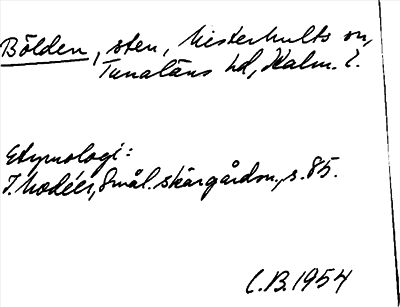 Bölden, sten, Misterhults sn,
Tunaläns hd, Kalm. l.
Etymologi:
I. Modéer, Smål. skärgårdsn., s. 85.
C.B. 1954